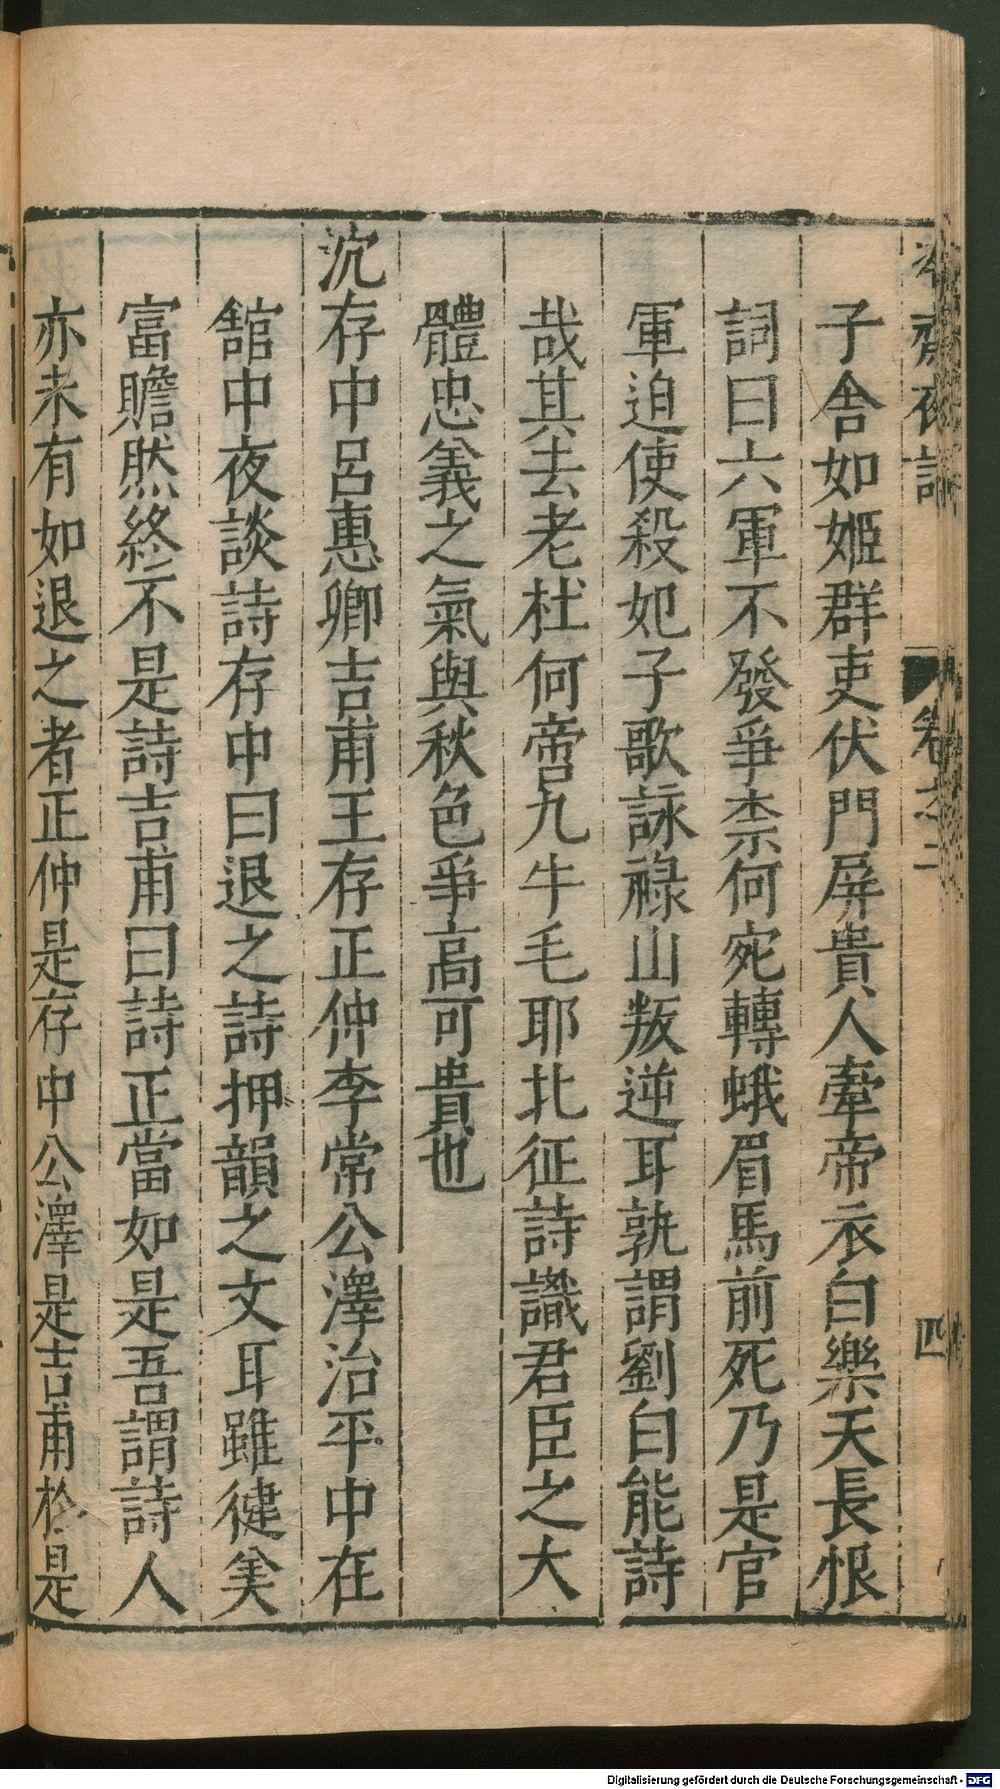 夜話
卷之二
四
子舍如姬群吏伏門屏貴人牽帝衣白樂天長恨
詞曰六軍不發爭柰何宛轉蛾眉馬前死乃是官
軍迫使殺妃子歌詠祿山叛逆耳孰謂劉白能詩
哉其去老杜何啻九牛毛耶北征詩識君臣之大
體忠義之氣與秋色爭高可貴也
沉存中呂惠卿吉甫王存正仲李常公澤治平中在
舘中夜談詩存中曰退之詩押韻之文耳雖徤羙
富贍然終不是詩吉甫曰詩正當如是吾謂詩人
亦未有如退之者正仲是存中公澤是吉甫於是
Digitalisierung gefördert durch die Deutsche Forschungsgemeinschaft - DFG